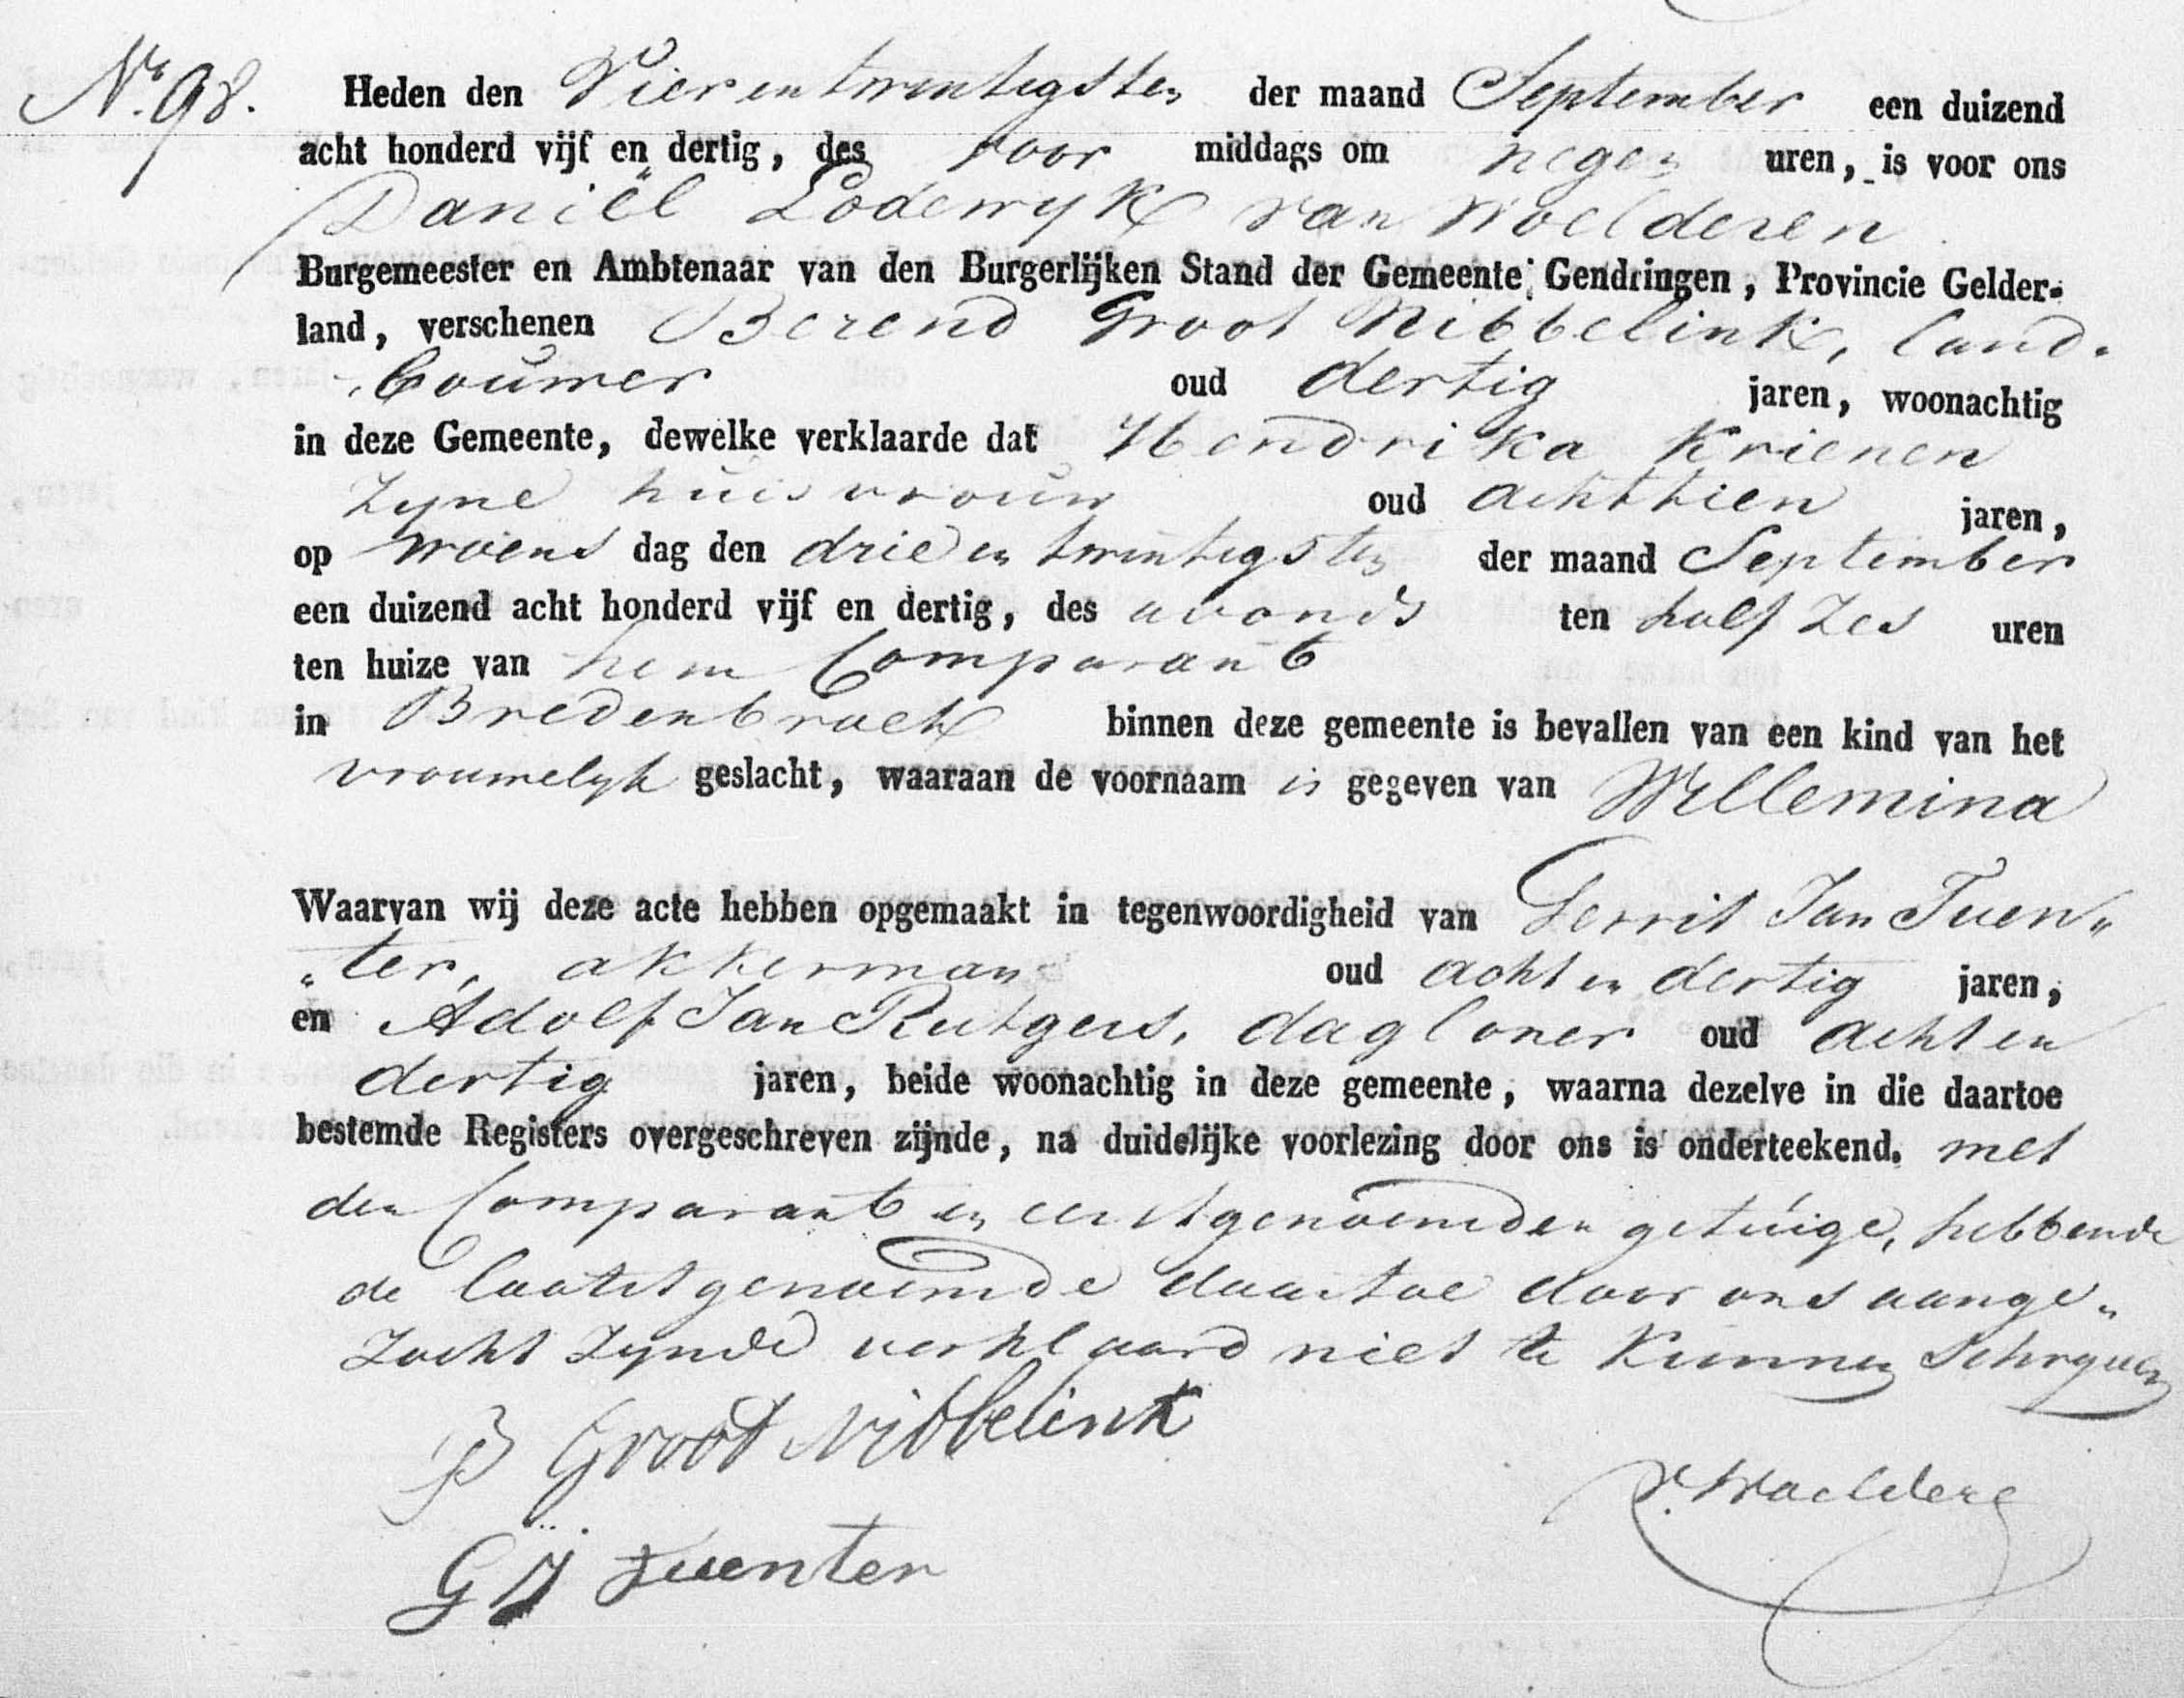 Nr. 98. Heden den Vier en twintigsten der maand September een duizend
acht honderd vijf en dertig, des voor middags om negen uren, is voor ons
Daniël Lodewyk van Woelderen
Burgemeester en Ambtenaar van den Burgerlijken Stand der Gemeente Gendringen, Provincie Gelder-
land, verschenen Berend Groot Nibbelink, land-
bouwer oud dertig jaren, woonachtig
in deze Gemeente, dewelke verklaarde dat Hendrika Krienen
zyne huisvrouw oud achttien jaren,
op woens dag den drie en twintigsten der maand September
een duizend acht honderd vijf en dertig, des avonds ten half zes uren
ten huize van hem Comparant
in Bredenbroek binnen deze gemeente is bevallen van een kind van het
vrouwelyk geslacht, waaraan de voornaam is gegeven van Willemina
Waarvan wij deze acte hebben opgemaakt in tegenwoordigheid van Gerrit Jan Tuen„
„ter, akkerman oud acht en dertig jaren,
en Adolf Jan Rutgers, dagloner oud acht en
dertig jaren, beide woonachtig in deze gemeente, waarna dezelve in die daartoe
bestemde Registers overgeschreven zijnde, na duidelijke voorlezing door ons is onderteekend. met
den Comparant en eerstgenoemden getuige, hebbende
de laatstgenoemde daartoe door ons aange„
zocht zynde verklaard niet te kunnen schryven
B Groot Nibbelink
v. Woelderen
G J Tuenter